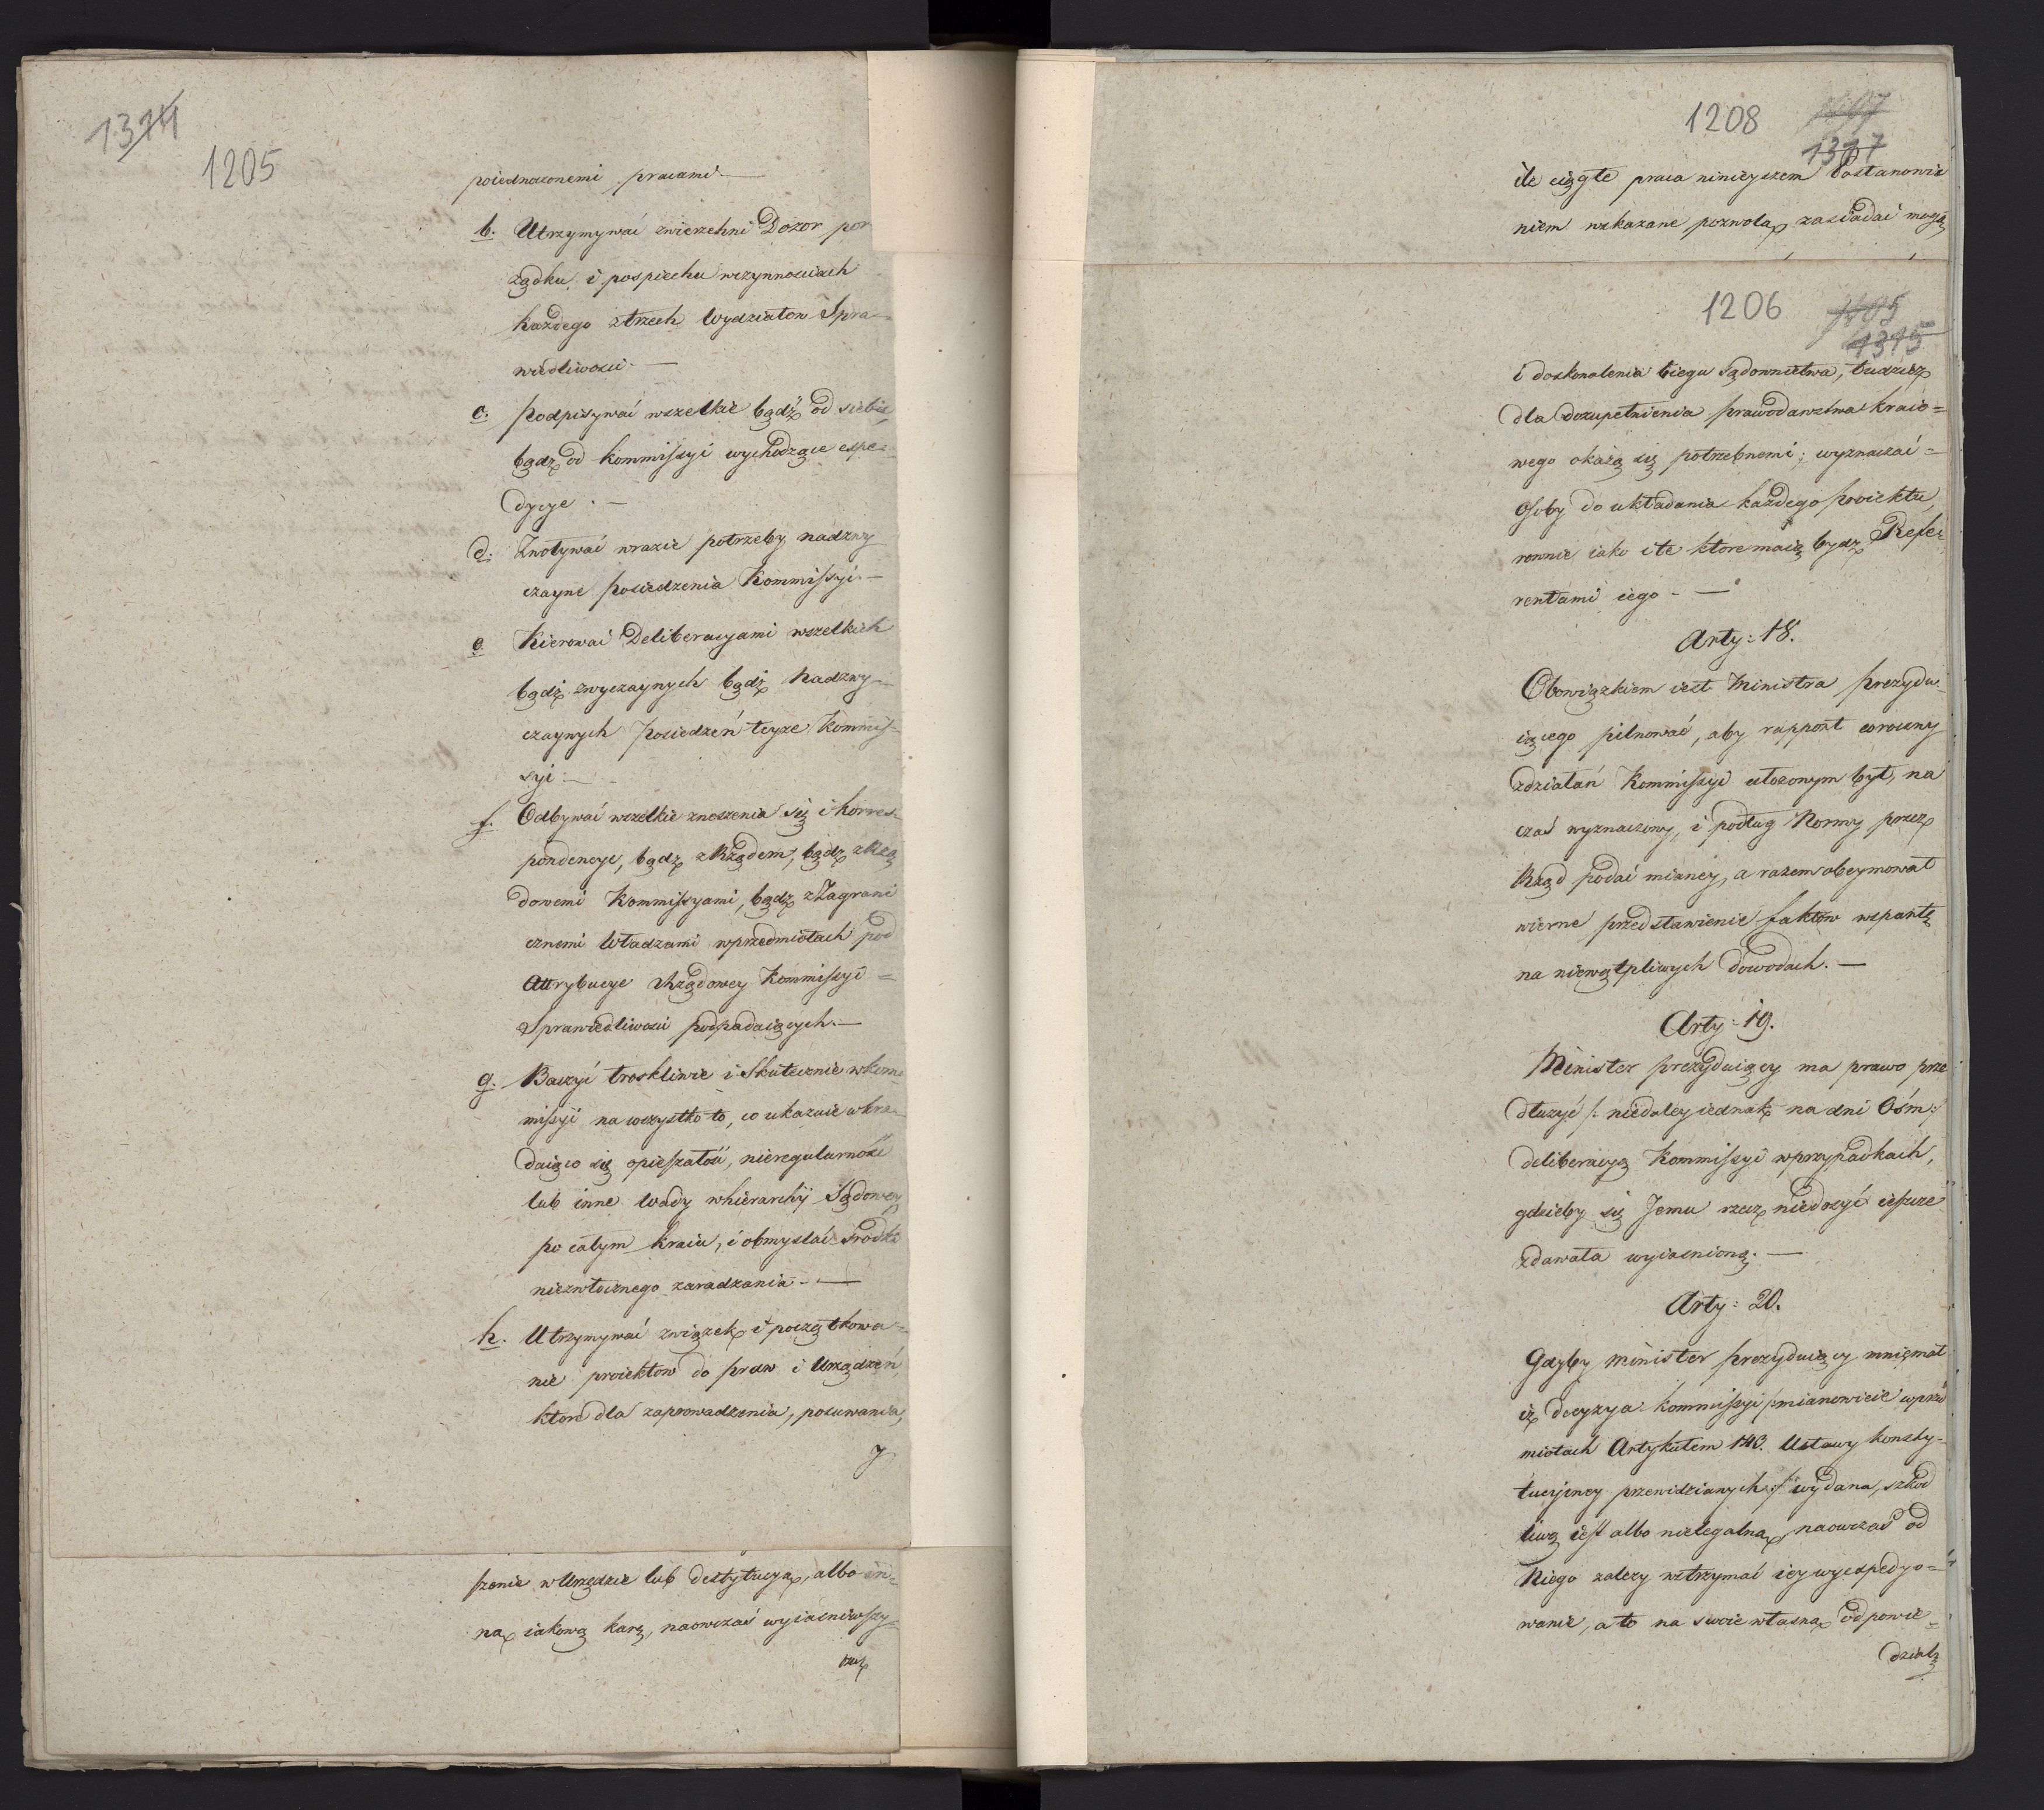 1314
1205
poiednaconemi pracami. —
b. Utrzymywać zwierzchni Dozor por
ządku i pospiechu wczynnościach
każdego ztrzech Wydziałow Spra-
wiedliwości. —
c. Podpisywać wszelkie bądź od siebie,
bądz od Kommissyi wychodzące expe-
dycye. —
d. Zwoływać wrazie potrzeby nadzwy
czayne posiedzenia Kommissyi. —
e Kierować Deliberacyami wszelkich
bądź zwyczaynych bądź Nadzwy-
czaynych posiedzeń teyze Kommis-
syi. —
f. Odbywać wszelkie znoszenia się i korres-
pondencye, bądz z Rządem, bądz z Rzą
dowemi Kommissyami, bądz z Zagrani
cznemi Władzami wprzedmiotach pod
Attrybucye Rządowey Kommissyi =
Sprawiedliwości podpadaiących. —
g. Baczyć troskliwie i Skutecznie wkom-
missyi na wszystko to, co ukazuie wkra-
daiąco się opieszałość, nieregularność
lub inne Wady whierarchij Sądowey
po całym kraiu, i obmyslać Srodki
niezwłocznego zaradzania. —
h. Utrzymywać związek i początkowa-
nie proiektow do praw i Urządzeń,
ktore dla zaprowadzenia, posuwania,
y
szenie w Urzędzie lub destytucya, albo in-
na iakową karę, naowczas wyiasniwszy
1208
1317
ile ciągłe praca ninieyszem Postanowie
niem wskazane pozwolą, zasiadać mogą
1206
1315
i doskonalenia biegu Sądownictwa, tudzież
dla dozupełnienia prawodawstwa kraio=
wego okażą się potrzebnemi; wyznaczać =
Osoby do układania każdego proiektu,
rownie iako i te ktore maią bydz Refe-
rentami iego. —
Arty: 18.
Obowiązkiem iest Ministra prezydu-
iącego pilnować, aby rapport coroczny
zdziałań Kommissyi ułozonym był, na
czas wyznaczony, i podług Normy przez
Rząd podać mianey, a razem obeymował
wierne przedstawienie faktow wsparte
na niewątpliwych dowodach. —
Arty: 19.
Minister prezyduiący ma prawo prze
dłużyć /: niedaley iednak na dni Ośm :/
deliberacyą Kommissyi wprzypadkach,
gdzieby się Jemu rzecz niedosyć ieszcze
zdawała wyiasnioną. —
Arty: 20.
Gdyby Minister prezyduiący mniemał
iż decyzya Kommissyi /: mianowicie wprzed
miotach Artykułem 143. Ustawy konsty-
tucyiney przewidzianych :/ wydana, szkod
liwą iest albo nielegalną, naowczas od
Niego zalezy wstrzymać iey wyexpedyo-
wanie, a to na swoie własną odpowie-
dzialn